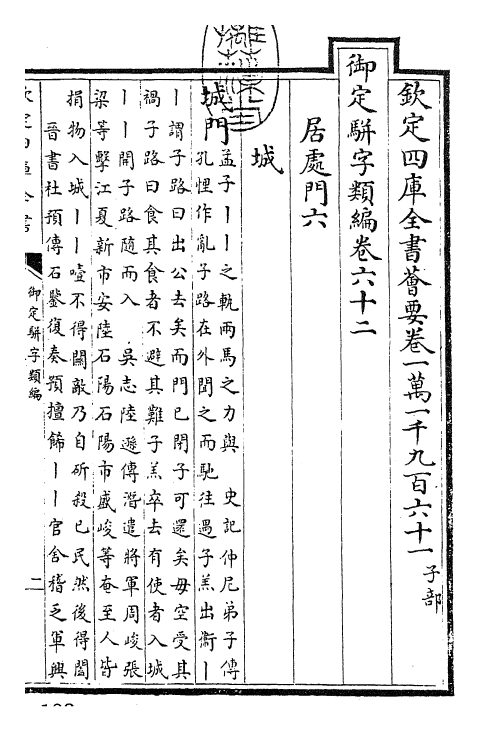 欽定四庫全書薈要卷一萬一千九百六十一 子部
御定駢字類編卷六十二
居處門六
城
城門 孟子丨丨之軌兩馬之力與 史記仲尼弟子傳
孔悝作亂子路在外聞之而馳往遇子羔出衞丨
丨謂子路曰出公去矣而門已閉子可還矣毋空受其
禍子路曰食其食者不避其難子羔卒去有使者入城
丨丨開子路隨而入 吳志陸遜傳潛遣將軍周峻張
梁等擊江夏新市安陸石陽石陽市盛峻等奄至人皆
捐物入城丨丨噎不得關敵乃自斫殺已民然後得闔
晉書杜預傳石鑒復奏預擅飾丨丨官舍稽乏軍興
御定駢字類編
二